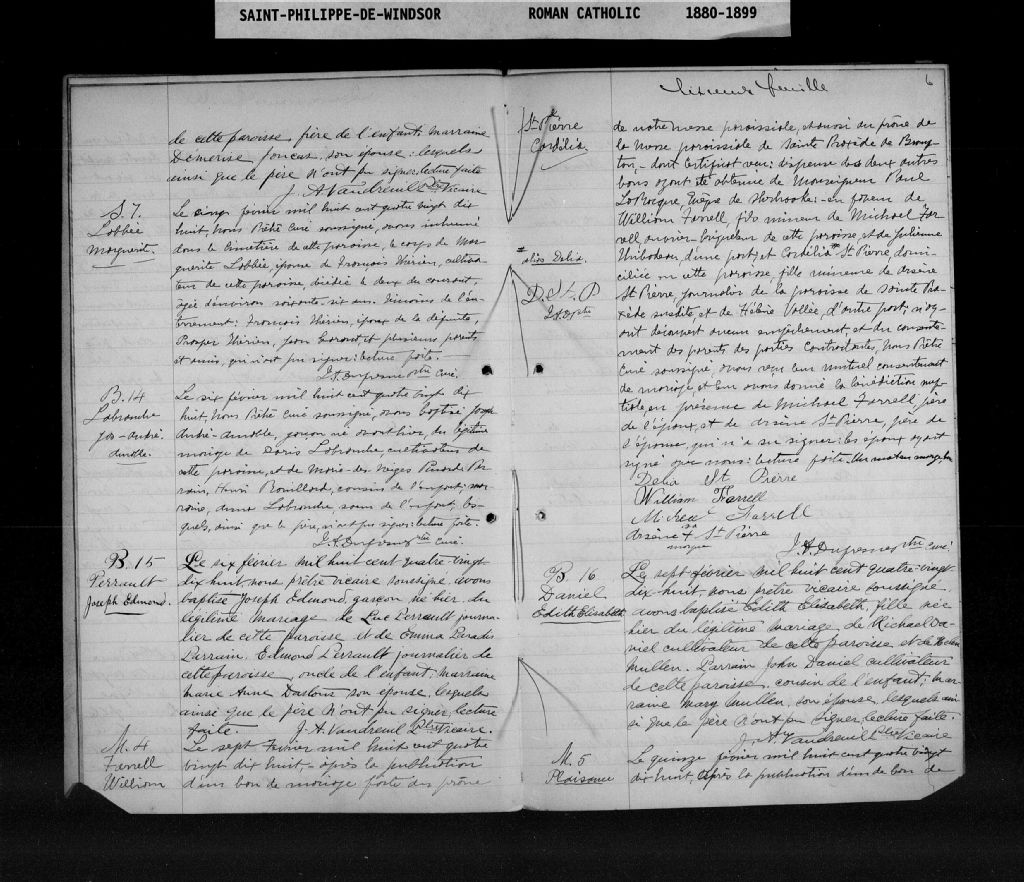 SAINT-PHILIPPE-DE-WINDSOR ROMAN CATHOLIC 1880-1899
de cette paroisse, frère de l'enfant; marraine
Démerise Joncas, son épouse, lesquels
ainsi que le père n'ont pu signer, lecture faite
J. A Vaudreuil Ptre Vicaire
S. 7.
Labbée
Marguerite.
Le cinq février mil huit cent quatre vingt dix
huit, Nous Prêtre Curé soussigné, avons inhumé
dans le cimetière de cette paroisse, le corps de Mar-
guerite Labbée, épouse de François Thérien, cultiva-
teur de cette paroisse, décédée le deux du courant,
agée d'environ soixante, six ans. Témoins de l'en-
terrement: François Thérien, époux de la défunte,
Prosper Thérien, Jean et plusieurs parents
et amis, qui n'ont pu signer: lecture faite.
J. A. Dufresne Ptre Curé.
B. 14
Labranche
Jos-André-
Le six février mil huit cent quatre vingt dix
huit, Nous Prêtre Curé soussigné, avons baptisé Joseph
André- garçon né avant hier du légitime
mariage de Labranche cultivateur de
cette paroisse, et de Marie des Neiges Par-
rain, Henri Rouillard, cousin de l'enfant; mar-
raine, Anna Labranche, soeur de l'enfant, les-
quels, ainsi que le père, n'ont pu signer: lecture faite.
J. A. Dufresne Ptre Curé.
B. 15
Perrault
Joseph Edmond.
Le six février mil huit cent quatre-vingt
dix huit, nous prêtre vicaire soussigné, avons
baptisé Joseph Edmond, garçon né hier du
légitime mariage de Luc Perrault journa-
lier de cette paroisse et de Emma Paradis
Parrain, Edmond Perrault journalier de
cette paroisse, oncle de l'enfant; marraine
Marie Anne Dastous son épouse, lesquels
ainsi que le père n'ont pu signer, lecture
faite. J. A. Vaudreuil Ptre Vicaire.
M. 4
Farrell
William
Le sept Février mil huit cent quatre
vingt dix huit, - après la publication
d'un ban de mariage faite au prône
St Pierre
Cordélia.
alias Delia.
D. St. P
J.A.D ptre
6
feuille
de notre messe paroissiale, et aussi au prône de
la messe paroissiale de Sainte Praxède de Bromp-
ton, - dont certificat reçu; dispense des deux autres
bans ayant été obtenue de Monseigneur Paul
LaRocque, Evêque de Sherbrooke: - en faveur de
William Farrell fils mineur de Michael Far-
rell, ouvrier-briqueteur de cette paroisse, et de Julienne
Thibodeau, d'une part, et Cordélia St-Pierre, domi-
ciliée en cette paroisse, fille mineure de Arsène
St Pierre, journalier de la paroisse de Sainte Pra-
xède susdite, et de Hélène Vallée, d'autre part; n'ay-
ant découvert aucun empêchement et du consente-
ment des parents des parties contractantes, Nous Prêtre
Curé soussigné, avons reçu leur mutuel consentement
de mariage, et leur avons donné la bénédiction nup-
tiale, en présence de Michael Farrell, père
de l'époux, et de Arsène St-Pierre, père de
l'épouse, qui n'a su signer: les époux ayant
signé avec nous: lecture faite.
Delia St Pierre
William Farrell
Michea Farrell
Arsène x St-Pierre
marque
J. A. Dufresne Ptre Curé
B 16
Daniel
Edith Elisabeth
Le sept février mil huit cent quatre-vingt
dix-huit, nous prêtre vicaire soussigné
avons baptisé Edith Elisabeth, fille née
hier du légitime mariage de Michael Da-
niel cultivateur de cette paroisse et de Helen
Mullen. Parrain John Daniel cultivateur
de cette paroisse, cousin de l'enfant; mar-
raine Mary Mullen, son épouse, lesquels ain-
si que le père n'ont pu signer, lecture faite.
J. A Vaudreuil Ptre Vicaire
M. 5
Plaisance
Le quinze février mil huit cent quatre vingt
dix huit, Après la publication d'un de ban de